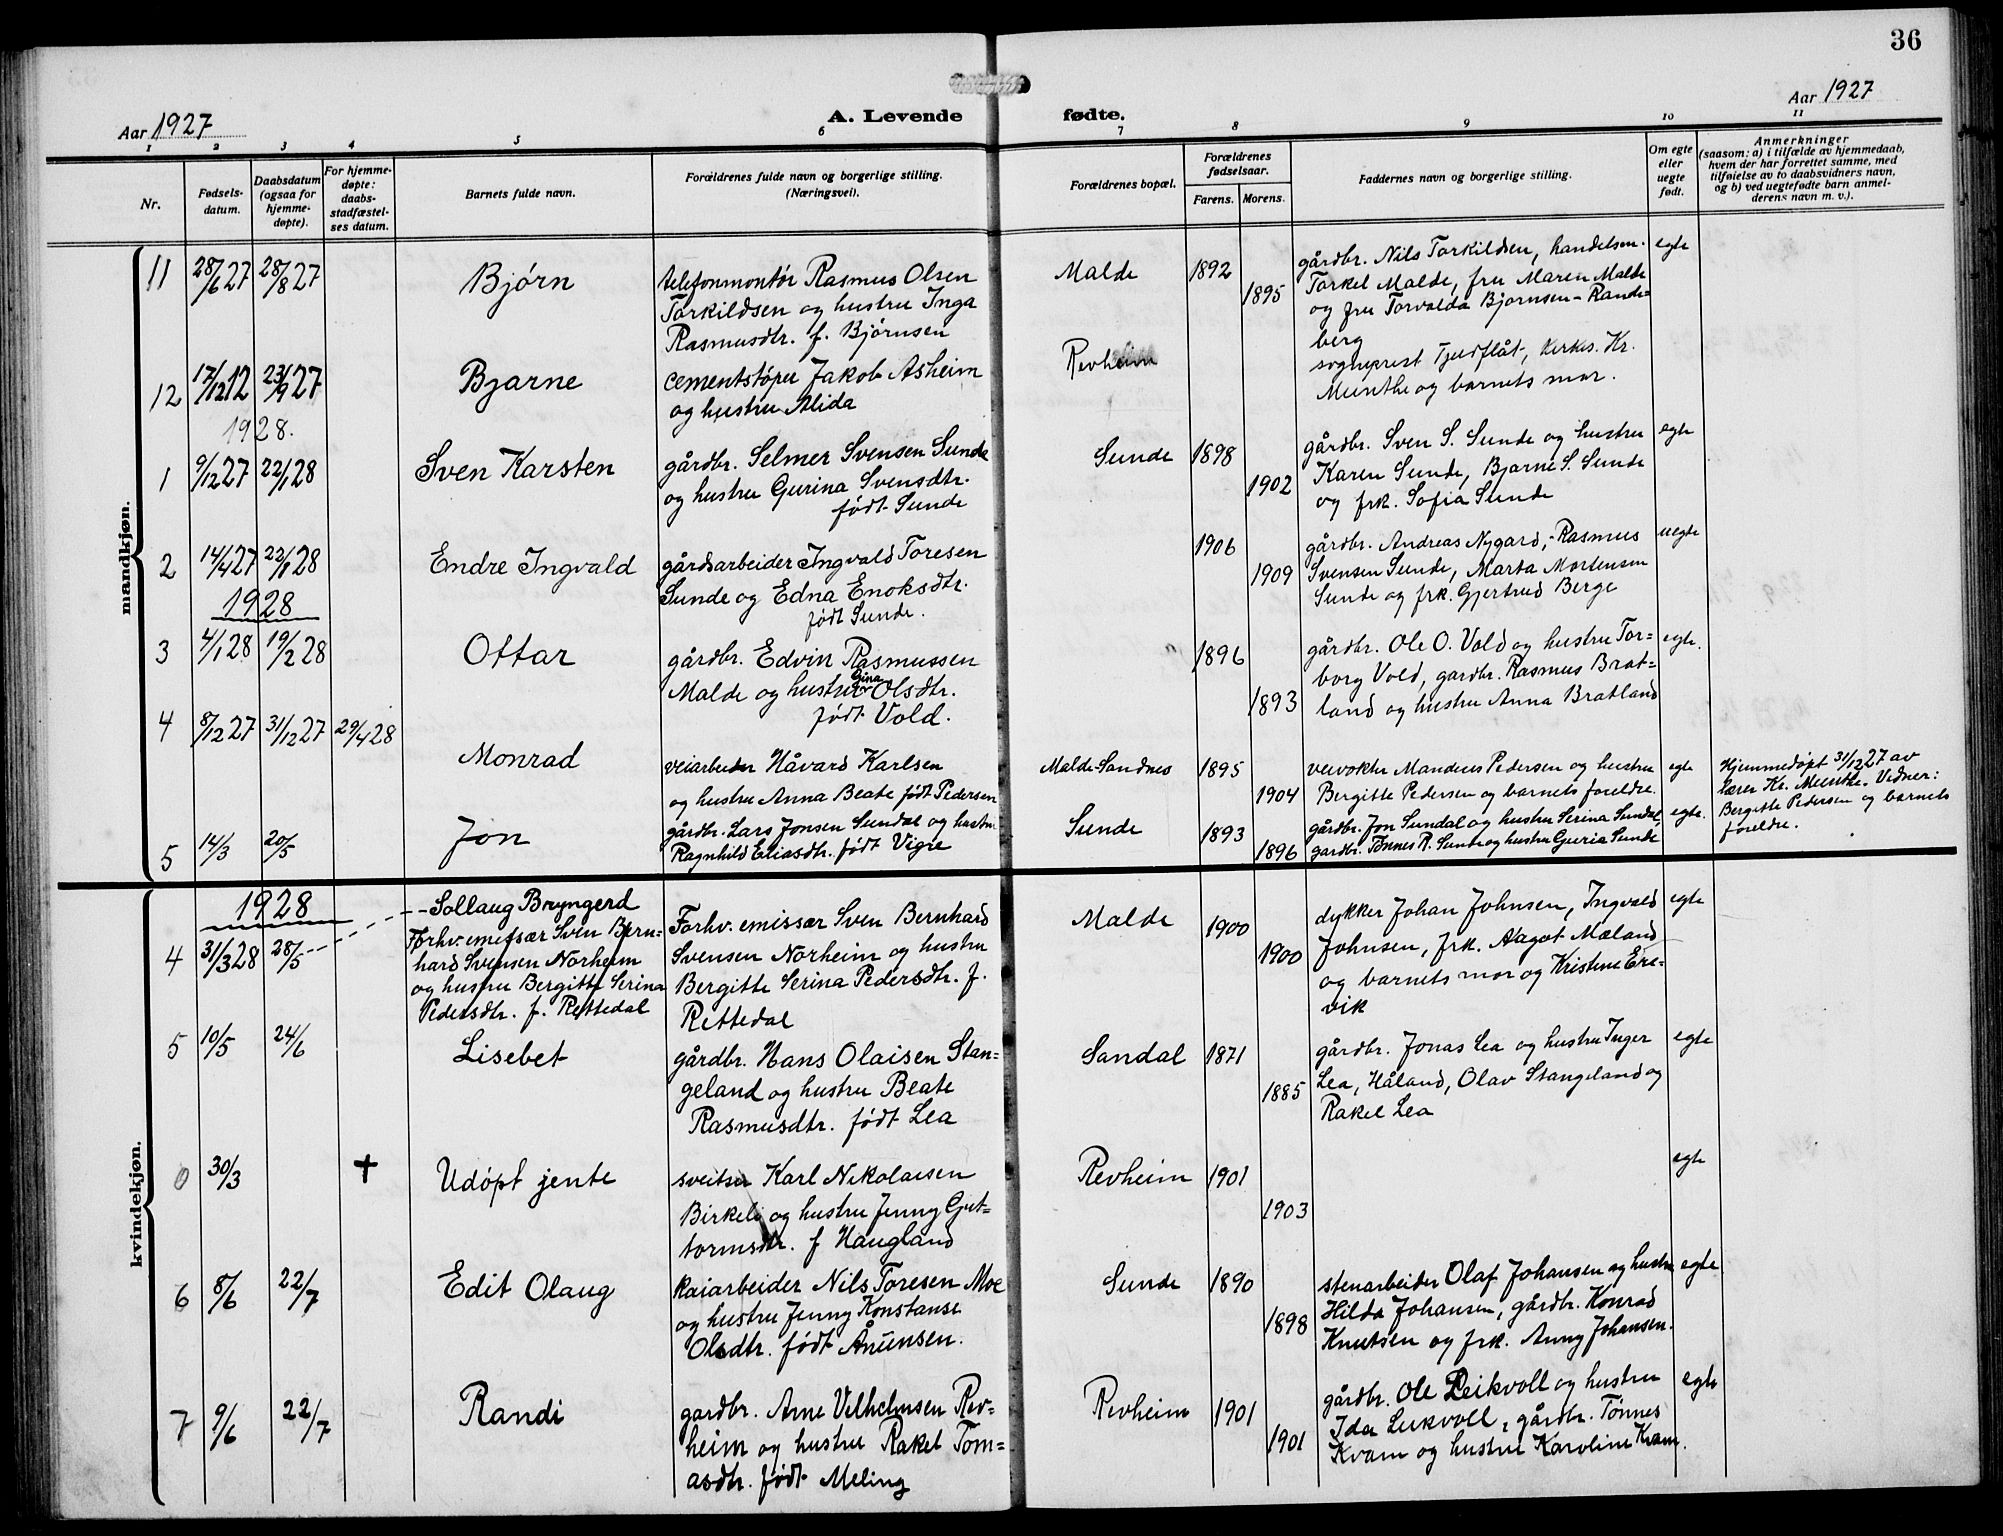 36
Aar 1927
A. Levende fødte.
Aar 1927
1 2 3 4 5 6 7 8 9 10 11
Nr.
Fødsels-
datum.
Daabsdatum
(ogsaa for
hjemme-
døpte).
For hjemme-
døpte:
daabs-
stadfæstel-
ses datum.
Barnets fulde navn.
Forældrenes fulde navn og borgerlige stilling.
(Næringsvei).
Forældrenes bopæl.
Forældrenes
fødselsaar.
Farens. Morens.
Faddernes navn og borgerlige stilling.
Om egte
eller
uegte
født.
Anmerkninger
(saasom: a) i tilfælde av hjemmedaab,
hvem der har forrettet samme, med
tilføielse av to daabsvidners navn,
og b) ved uegtefødte barn anmel-
derens navn m. v.).
mandkjøn.
11 28/6 27 28/8 27
Bjørn
telefonmontør Rasmus Olsen
Torkildsen og hustru Inga
Rasmusdtr. f. Bjørnsen
Malde 1892
1895
gårdbr. Nils Torkildsen, handelsm.
Torkel Malde, fru Maren Malde
og fru Torvalda Bjørnsen - Rande=
berg
egte
12 17/12 12 23/9 27
Bjarne
cementstøper Jakob Asheim
og hustru Alida
Revheim
sogneprest Tjudflåt, kirkes. Kr.
Munthe og barnets mor.
1928.
1 9/12 27 22/1 28
Sven Karsten
gårdbr. Selmer Svensen Sunde
og hustru Gurina Svensdtr.
født Sunde
Sunde 1898
1902
gårdbr. Sven S. Sunde og hustru
Karen Sunde, Bjarne S. Sunde
og frk. Sofia Sunde
egte
2 14/4 27 22/1 28
Endre Ingvald
gårdsarbeider Ingvald Toresen
Sunde og Edna Enoksdtr.
født Sunde.
1906
1909
gårdbr. Andreas Nygard, - Rasmus
Svensen Sunde, Marta Mortensen
Sunde og frk. Gjertrud Berge
uegte
1928
3 4/1 28 19/2 28
Ottar
gårdbr. Edvin Rasmussen
Malde og hustru Gina Olsdtr.
født Vold.
1896
1893
gårdbr. Ole O. Vold og hustru Tor=
borg Vold, gardbr. Rasmus Brat=
land og hustru Anna Bratland
egte.
4 8/12 27 31/12 27 29/4 28
Monrad
veiarbeider Håvard Karlsen
og hustru Anna Beate født Pedersen
Malde-Sandnes 1895
1904
veivokter Mandius Pedersen og hustru
Bergitte Pedersen og barnets foreldre.
egte
Hjemmedøpt 31/12 27 av
lærer Kr. Munthe. Vidner:
Bergitte Pedersen og barnets
foreldre.
5 14/3 20/5
Jon
gårdbr. Lars Jonsen Sundal og hustru
Ragnhild Eliasdtr. født Vigre
Sunde 1893
1896
gårdbr. Jon Sundal og hustru Serina Sundal,
gardbr. Tønnes R. Sunde og hustru Guria Sunde
egte.
kvindekjøn.
1928
4 31/3 28 28/5
Sollaug Bryngerd
Forhv. emissær Sven Bern=
hard Svensen Norheim
og hustru Bergitte Serina
Pedersdtr. f. Rettedal
Forhv. emissær Sven Bernhard
Svensen Norheim og hustru
Bergitte Serina Pedersdtr. f.
Rettedal
Malde 1900
1900
dykker Johan Johnsen, Ingvald
Johnsen, frk. Aagot Mæland
og barnets mor og Kristine Ere=
vik
egte
5 10/5 24/6
Lisebet
gårdbr. Hans Olaisen Stan=
geland og hustru Beate
Rasmusdtr. født Lea
Sandal 1871
1885
gårdbr. Jonas Lea og hustru Inger
Lea, Håland, Olav Stangeland og
Rakel Lea
egte
0 30/3 †
Udøpt jente
sveitser Karl Nikolaisen
Birkeli og hustru Jenny Gut=
tormsdtr. f Haugland
Revheim 1901
1903
egte
6 8/6 22/7
Edit Olaug
kaiarbeider Nils Toresen Moe
og hustru Jenny Konstanse
Olsdtr. født Ånensen.
Sunde 1890
1898
stenarbeider Olaf Johansen og hustru
Hilda Johansen, gårdbr. Konrad
Knutsen og frk. Anny Johansen.
egte
7 9/6 22/7
Randi
gardbr. Arne Vilhelmsen Rev=
heim og hustru Rakel Tom=
asdtr. født Meling
Revheim 1901
1901
gårdbr. Ole Leikvoll og hustru
Ida Leikvoll, gårdbr. Tønnes
Kvam og hustru Karoline Kvam.
egte